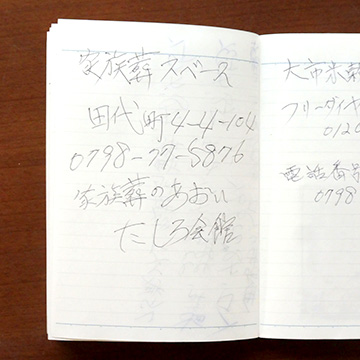 家族葬スペース
田代町4-4-104
0798-77-5876
家族葬のあおい
たしろ会館
大市米穀
フリーダイヤ
0120
電話番号
0798